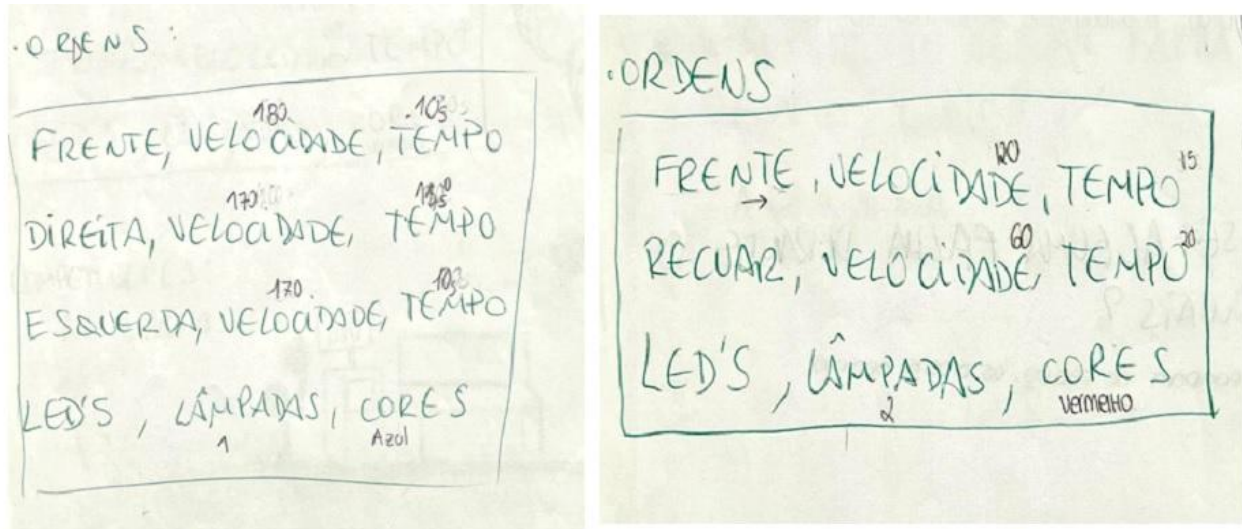 .ORDENS:
180. .10s
FRENTE, VELOCIDADE, TEMPO
170
DIREITA, VELOCIDADE, TEMPO
170.
ESQUERDA, VELOCIDADE, TEMPO
LED'S, LÂMPADAS, CORES
1 Azul
.ORDENS:
120 15
FRENTE, VELOCIDADE, TEMPO
→
60 20
RECUAR, VELOCIDADE, TEMPO
LED'S, LÂMPADAS, CORES
2 vermelho